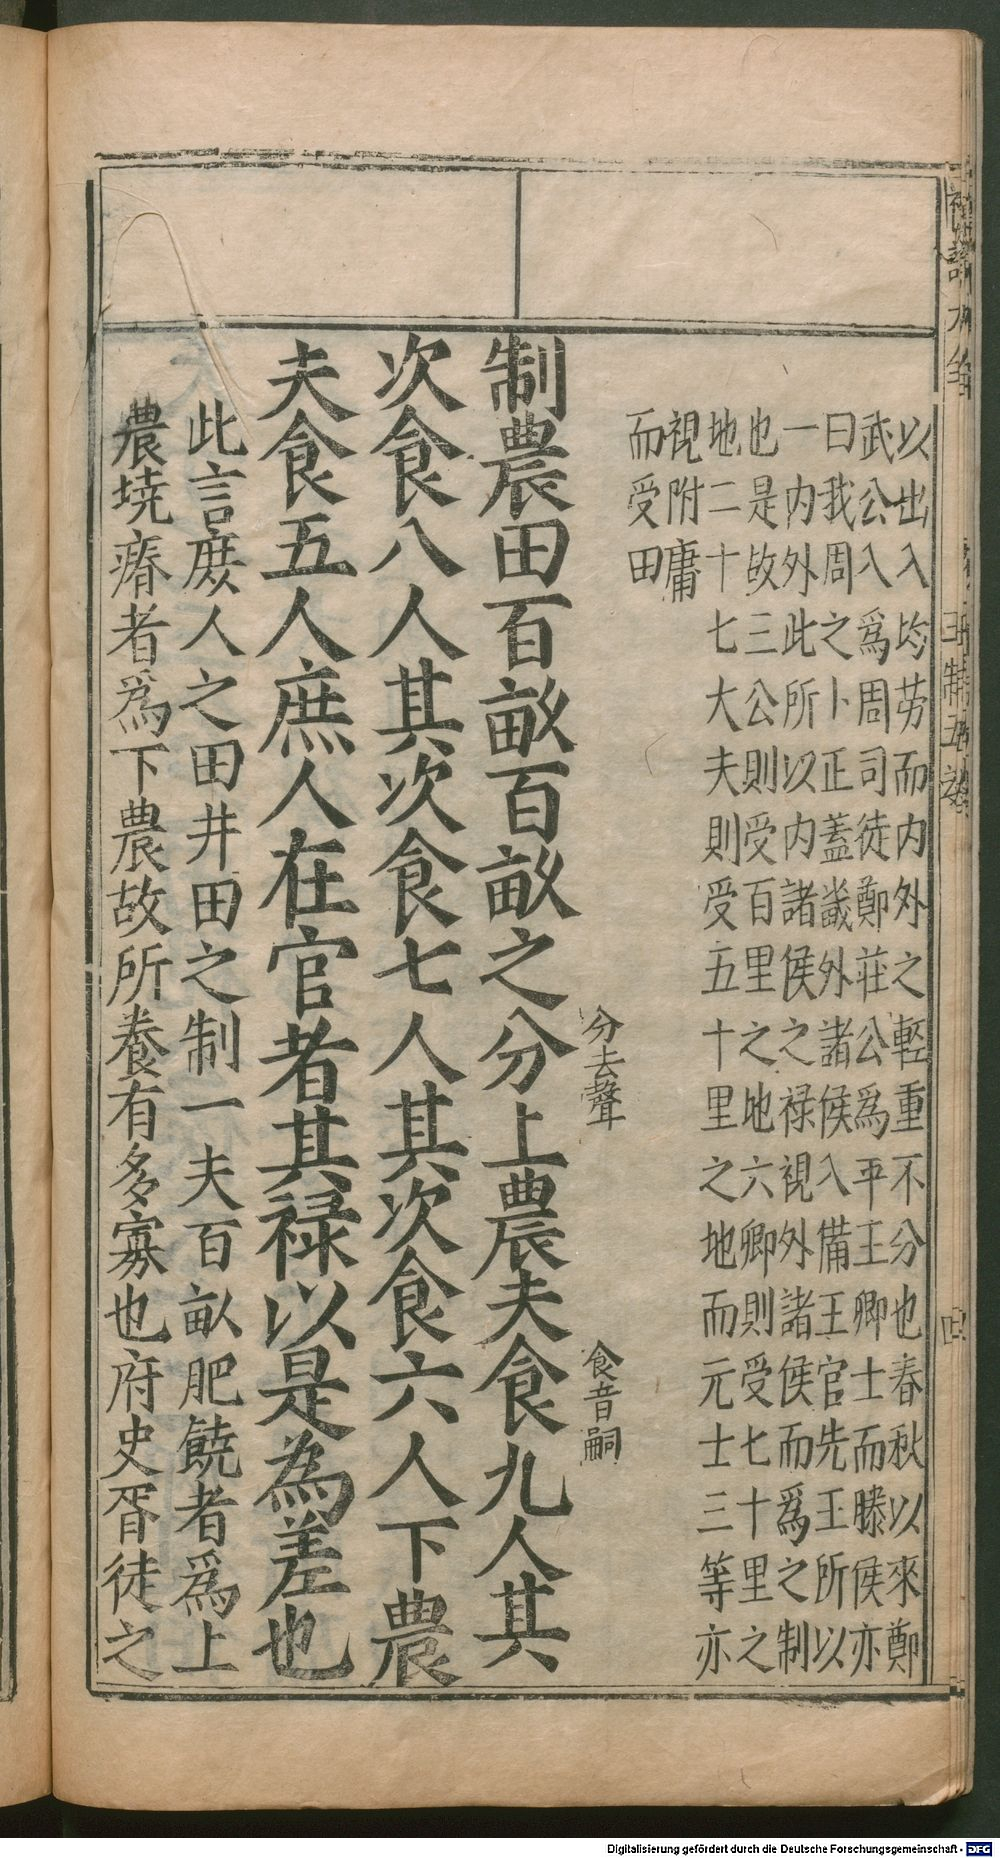 以出入均劳而内外之輕重不分也春秋以來鄭
武公入爲周司徒鄭莊公爲平王卿士而滕侯亦
曰我周之卜正蓋畿外諸侯入備王官先王所以
一内外此所以内諸侯之禄視外諸侯而爲之制
也是故三公則受百里之地六卿則受七十里之
地二十七大夫則受五十里之地而元士三等亦
視附庸
而受田
分去聲
食音嗣
制農田百畝百畝之分上農夫食九人其
次食八人其次食七人其次食六人下農
夫食五人庶人在官者其禄以是為差也
此言庶人之田井田之制一夫百畝肥饒者爲上
農墝瘠者爲下農故所養有多寡也府史胥徒之
王制五
四
Digitalisierung gefördert durch die Deutsche Forschungsgemeinschaft - DFG